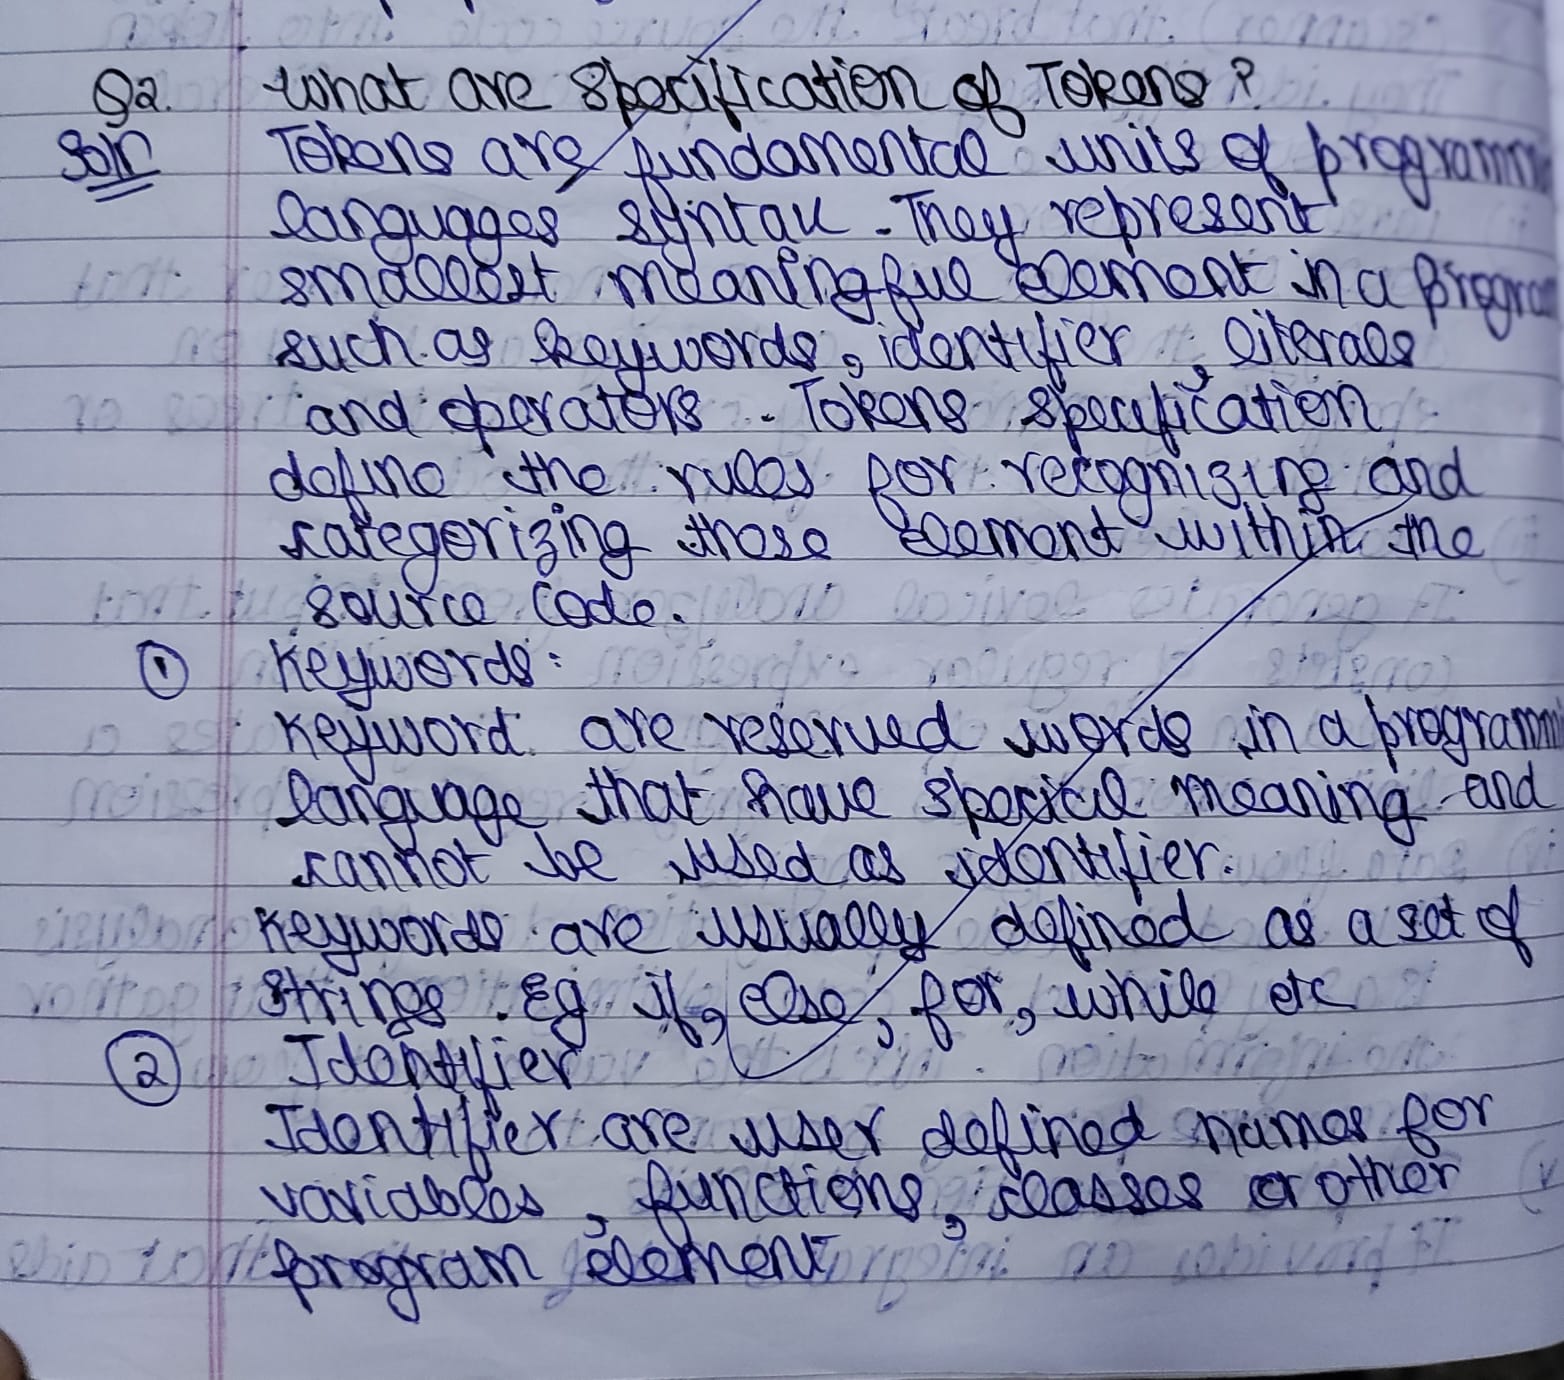 Q2. What are Specification of Tokens ?
Soln Tokens are fundamental units of programm
languages syntax. They represent
smallest meaningful element in a Program
such as keywords, identifier, literals
and operators. Tokens specification
define the rules for recognizing and
categorizing those element within the
source code.
① Keywords:
Keyword are reserved words in a programm
language that have special meaning and
cannot be used as identifier.
Keywords are usually defined as a set of
strings. Eg if, else, for, while etc
② Identifier
Identifier are user defined names for
variables, functions, classes or other
program element